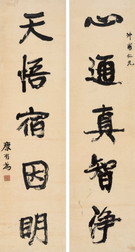 仁兄
心通真智淨
天悟宿因明
康有為